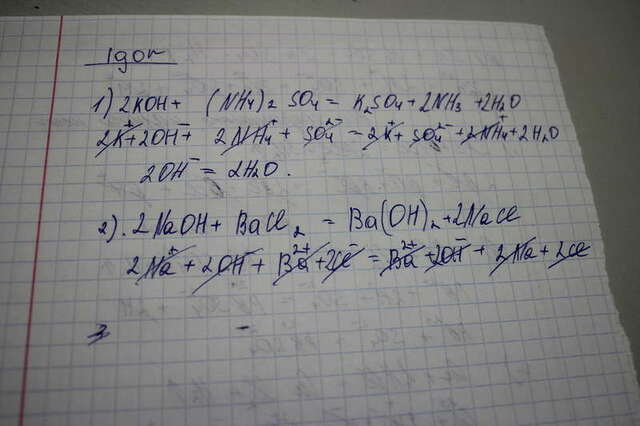 Igor
1) 2KOH + (NH4)2 SO4 = K2SO4 + 2NH3 + 2H2O
2K⁺ + 2OH⁻ + 2NH4⁺ + SO4²⁻ = 2K⁺ + SO4²⁻ + 2NH4⁺ + 2H2O
2OH⁻ = 2H2O.
2). 2NaOH + BaCl2 = Ba(OH)2 + 2NaCl
2Na⁺ + 2OH⁻ + Ba²⁺ + 2Cl⁻ = Ba²⁺ + 2OH⁻ + 2Na + 2Cl
3